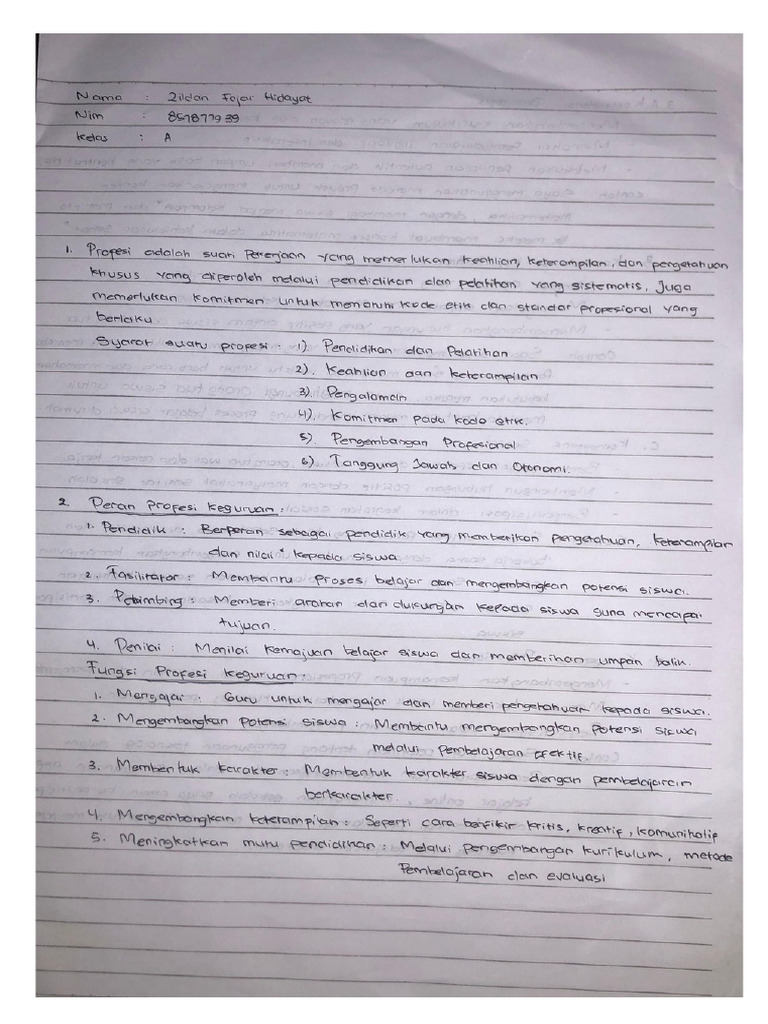 Nama : Zildan Fajar Hidayat
Nim : 857877939
Kelas : A
1. Profesi adalah suati Pekerjaan yang memerlukan keahlian, keterampilan, dan pengetahuan
khusus yang diperoleh melalui pendidikan dan pelatihan yang sistematis, Juga
memerlukan komitmen untuk menaruhi kode etik dan standar profesional yang
berlaku.
Syarat suatu profesi : 1). Pendidikan dan Pelatihan
2). Keahlian dan keterampilan
3). Pengalaman
4). Komitmen pada kode etik.
5). Pengembangan Profesional
6). Tanggung Jawab dan Otonomi.
2. Peran Profesi Keguruan :
1. Pendidik : Berperan sebagai pendidik yang memberikan pengetahuan, keterampilan
dan nilai" kepada siswa.
2. Fasilitator : Membantu proses belajar dan mengembangkan potensi siswa.
3. Pembimbing : Memberi arahan dan dukungan kepada siswa guna mencapai
tujuan.
4. Penilai : Menilai kemajuan belajar siswa dan memberikan umpan balik.
Fungsi Profesi Keguruan :
1. Mengajar : Guru untuk mengajar dan memberi pengetahuan kepada siswa.
2. Mengembangkan potensi siswa : Membantu mengembangkan potensi siswa
melalui pembelajaran efektif.
3. Membentuk karakter : Membentuk karakter siswa dengan pembelajaran
berkarakter.
4. Mengembangkan keterampilan : Seperti cara berfikir kritis, kreatif, komunikatif
5. Meningkatkan mutu pendidikan : Melalui pengembangan kurikulum, metode
Pembelajaran dan evaluasi